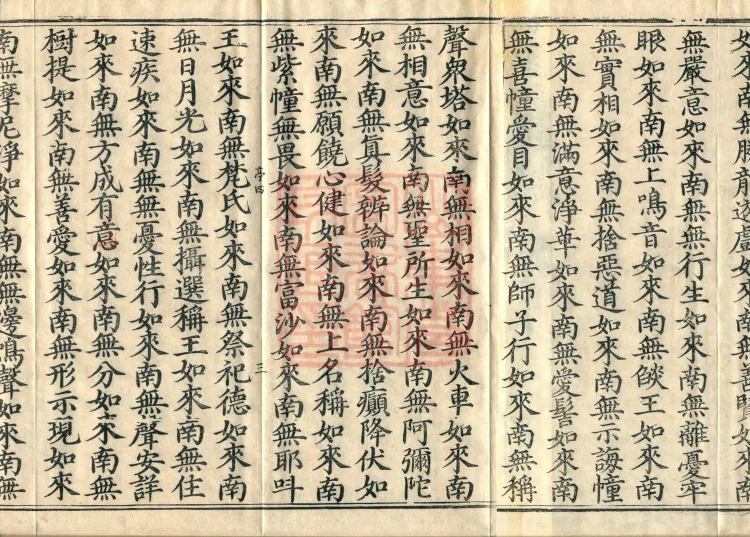 如來南無勝龍如來南無善賢如
無嚴意如來南無無行生如來南無離憂牢
眼如來南無上鳴音如來南無燄王如來南
無實相如來南無捨惡道如來南無示誨幢
如來南無滿意淨華如來南無愛髻如來南
無喜幢愛目如來南無師子行如來南無稱
聲眾塔如來南無相如來南無火車如來南
無相意如來南無聖所生如來南無阿彌陀
如來南無真髮辨論如來南無捨癲降伏如
來南無願饒心健如來南無上名稱如來南
無紫幢無畏如來南無富沙如來南無耶呌
亭四 三
王如來南無梵氏如來南無祭祀德如來南
無日月光如來南無攝選稱王如來南無住
速疾如來南無憂性行如來南無聲安詳
如來南無方成有意如來南無分如來南無
樹提如來南無善愛如來南無形示現如來
南無摩尼淨如來南無無邊鳴聲如來南無